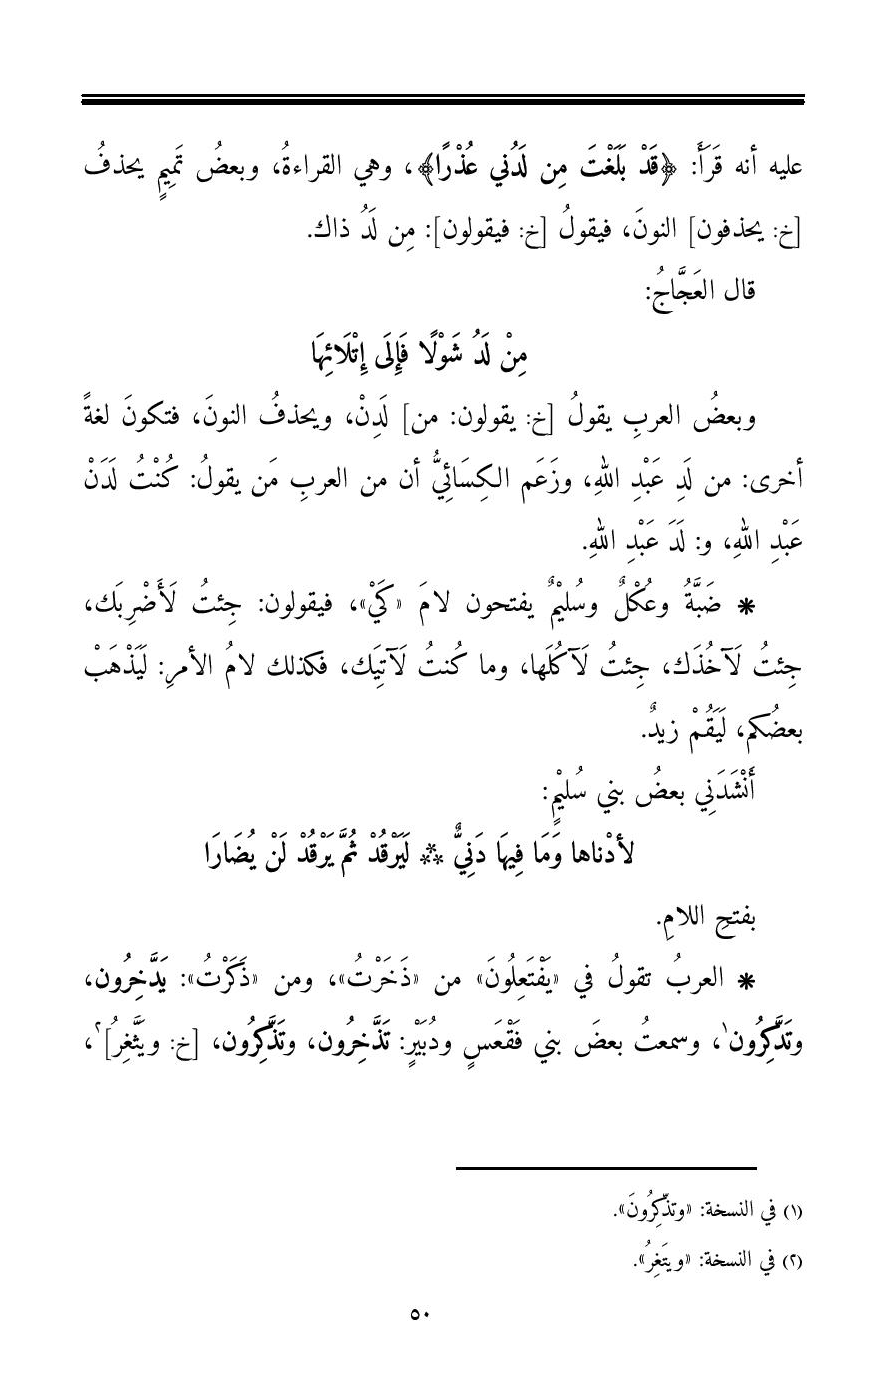 عليه أنه قَرَأَ: ﴿قَدْ بَلَغْتَ مِن لَدُني عُذْرًا﴾، وهي القراءةُ، وبعضُ تَمِيمٍ يحذفُ
[خ: يحذفون] النونَ، فيقولُ [خ: فيقولون]: مِن لَدُ ذاك.
قال العَجَّاجُ:
مِنْ لَدُ شَوْلًا فَإِلَى إِتْلَائِهَا
وبعضُ العربِ يقولُ [خ: يقولون: من] لَدِنْ، ويحذفُ النونَ، فتكونَ لغةً
أخرى: من لَدِ عَبْدِ اللهِ، وزَعَم الكِسَائِيُّ أن من العربِ مَن يقولُ: كُنْتُ لَدَنْ
عَبْدِ اللهِ، و: لَدَ عَبْدِ اللهِ.
* ضَبَّةُ وعُكْلٌ وسُليْمٌ يفتحون لامَ «كَيْ»، فيقولون: جِئتُ لَأَضْرِبَك،
جِئتُ لَآخُذَك، جِئتُ لَآكُلَها، وما كُنتُ لَآتِيَك، فكذلك لامُ الأمرِ: لَيَذْهَبْ
بعضُكم، لَيَقُمْ زيدٌ.
أَنْشَدَنِي بعضُ بني سُليْمٍ:
لأدْناها وَمَا فِيهَا دَنِيٌّ ⁂ لَيَرْقُدْ ثُمَّ يَرْقُدْ لَنْ يُضَارَا
بفتحِ اللامِ.
* العربُ تقولُ في «يَفْتَعِلُونَ» من «ذَخَرْتُ»، ومن «ذَكَرْتُ»: يَدَّخِرُون،
وتَدَّكِرُون١، وسمعتُ بعضَ بني فَقْعَسٍ ودُبَيْرٍ: تَذَّخِرُون، وتَذَّكِرُون، [خ: ويَثَّغِرُ]٢،
(١) في النسخة: «وتذّكِرُونَ».
(٢) في النسخة: «ويتَغِرُ».
٥٠